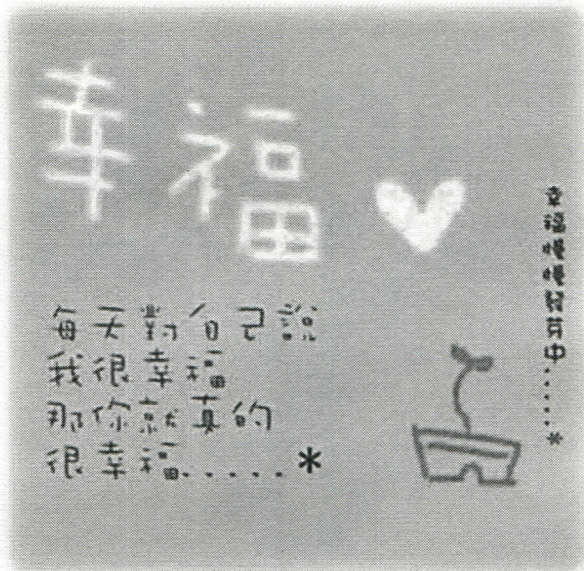 幸福
每天對自己說
我很幸福
那你就真的
很幸福.....*
幸福慢慢發芽中......*